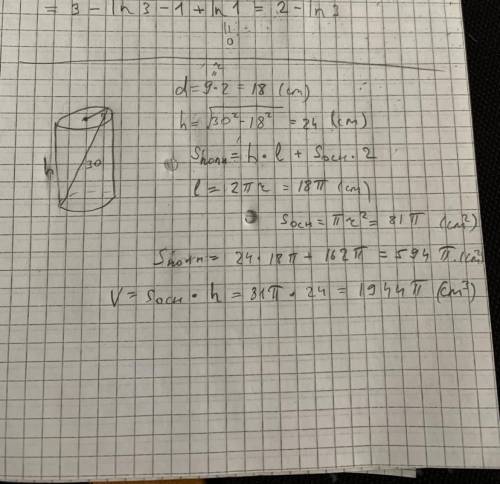 = 3 - ln 3 - 1 + ln 1 = 2 - ln 3
"
0
r
"
d = 9·2 = 18 (cm)
h = √30² - 18² = 24 (cm)
h
30
Sполн = h · l + Sосн · 2
l = 2πr = 18π (cm)
Sосн = πr² = 81π (cm²)
Sполн = 24 · 18π + 162π = 594π (cm²)
V = Sосн · h = 31π · 24 = 1944π (cm³)